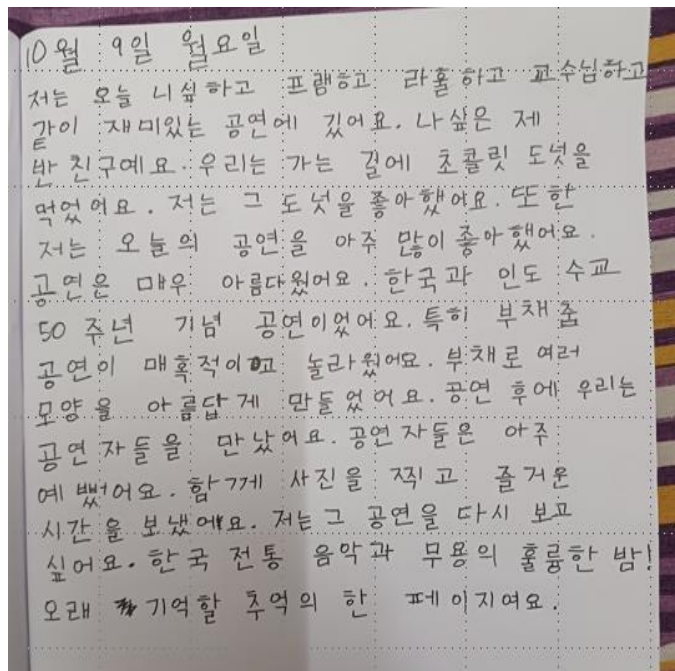 10월 9일 월요일
저는 오늘 니싶하고 프램하고 라훌하고 교수님하고
같이 재미있는 공연에 깄어요. 나싶은 제
반 친구예요. 우리는 가는 길에 초콜릿 도넛을
먹었어요. 저는 그 도넛을 좋아했어요. 또한
저는 오늘의 공연을 아주 많이 좋아했어요.
공연은 매우 아름다웠어요. 한국과 인도 수교
50 주년 기념 공연이었어요. 특히 부채춤
공연이 매혹적이고 놀라웠어요. 부채로 여러
모양을 아름답게 만들었어요. 공연 후에 우리는
공연자들을 만났어요. 공연자들은 아주
예뻤어요. 함께 사진을 찍고 즐거운
시간을 보냈에요. 저는 그 공연을 다시 보고
싶어요. 한국 전통 음악과 무용의 훌륭한 밤!
오래 기억할 추억의 한 페이지여요.